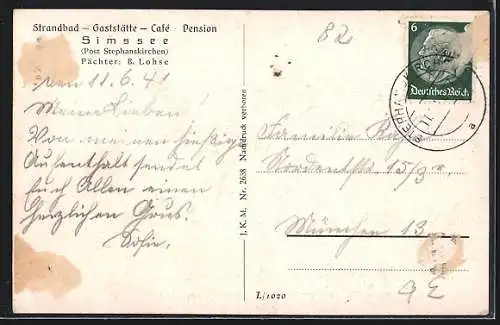 Strandbad – Gaststätte – Café Pension
Simssee
(Post Stephanskirchen)
Pächter: B. Lohse
den 11.6.41
Meine Lieben!
Von meinem hiesigen
Aufenthalt sendet
Euch Allen einen
herzlichen Gruss.
Sofie.
J. K. M. Nr. 2638 Nachdruck verboten
82
6
Deutsches Reich
Familie
Nordendstr. 15/3
München 13
L/1020